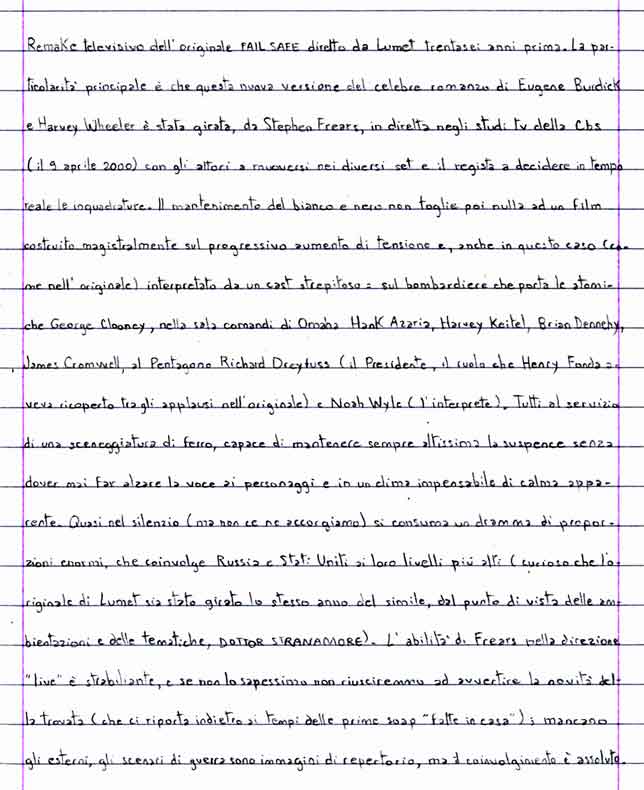 Remake televisivo dell'originale FAIL SAFE diretto da Lumet trentasei anni prima. La par-
ticolarità principale è che questa nuova versione del celebre romanzo di Eugene Burdick
e Harvey Wheeler è stata girata, da Stephen Frears, in diretta negli studi tv della Cbs
(il 9 aprile 2000) con gli attori a muoversi nei diversi set e il regista a decidere in tempo
reale le inquadrature. Il mantenimento del bianco e nero non toglie poi nulla ad un film
costruito magistralmente sul progressivo aumento di tensione e, anche in questo caso (co-
me nell'originale) interpretato da un cast strepitoso: sul bombardiere che porta le atomi-
che George Clooney, nella sala comandi di Omaha Hank Azaria, Harvey Keitel, Brian Dennehy,
James Cromwell, al Pentagono Richard Dreyfuss (il Presidente, il ruolo che Henry Fonda a-
veva ricoperto tra gli applausi nell'originale) e Noah Wyle (l'interprete). Tutti al servizio
di una sceneggiatura di ferro, capace di mantenere sempre altissima la suspence senza
dover mai far alzare la voce ai personaggi e in un clima impensabile di calma appa-
rente. Quasi nel silenzio (ma non ce ne accorgiamo) si consuma un dramma di propor-
zioni enormi, che coinvolge Russia e Stati Uniti ai loro livelli più alti (curioso che l'o-
riginale di Lumet sia stato girato lo stesso anno del simile, dal punto di vista delle am-
bientazioni e delle tematiche, DOTTOR STRANAMORE). L'abilità di Frears nella direzione
"live" è strabiliante, e se non lo sapessimo non riusciremmo ad avvertire la novità del-
la trovata (che ci riporta indietro ai tempi delle prime soap "fatte in casa"); mancano
gli esterni, gli scenari di guerra sono immagini di repertorio, ma il coinvolgimento è assoluto.